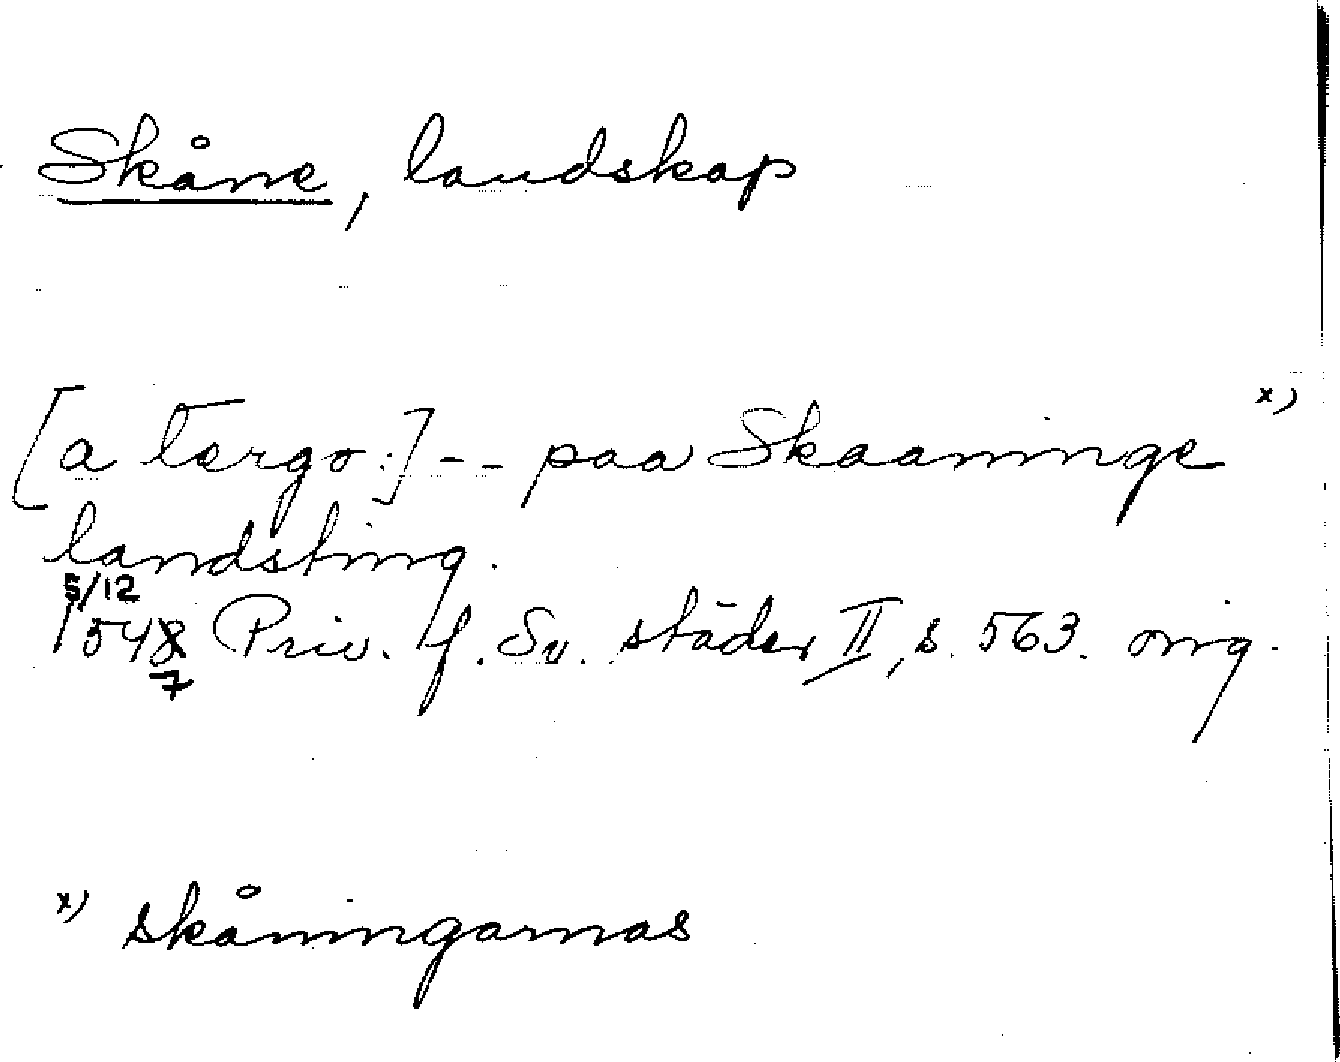 Skåne, landskap
[a tergo:] -- paa Skaaninge x)
landsting.
5/12
1548 Priv. f. Sv. städer II, s. 563. orig.
7
x) skåningarnas